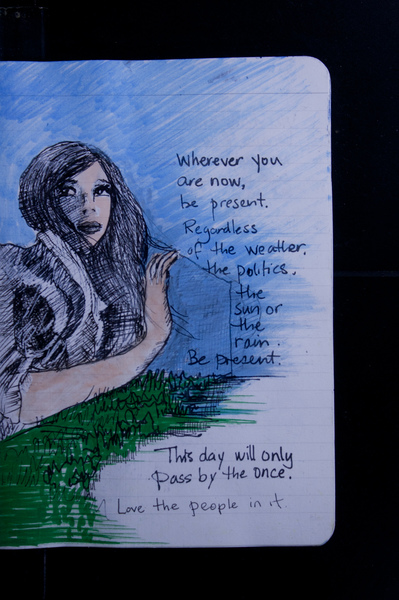 Wherever you
are now,
be present.
Regardless
of the weather,
the politics.
the
sun or
the
rain.
Be present.
This day will only
pass by the once.
Love the people in it.